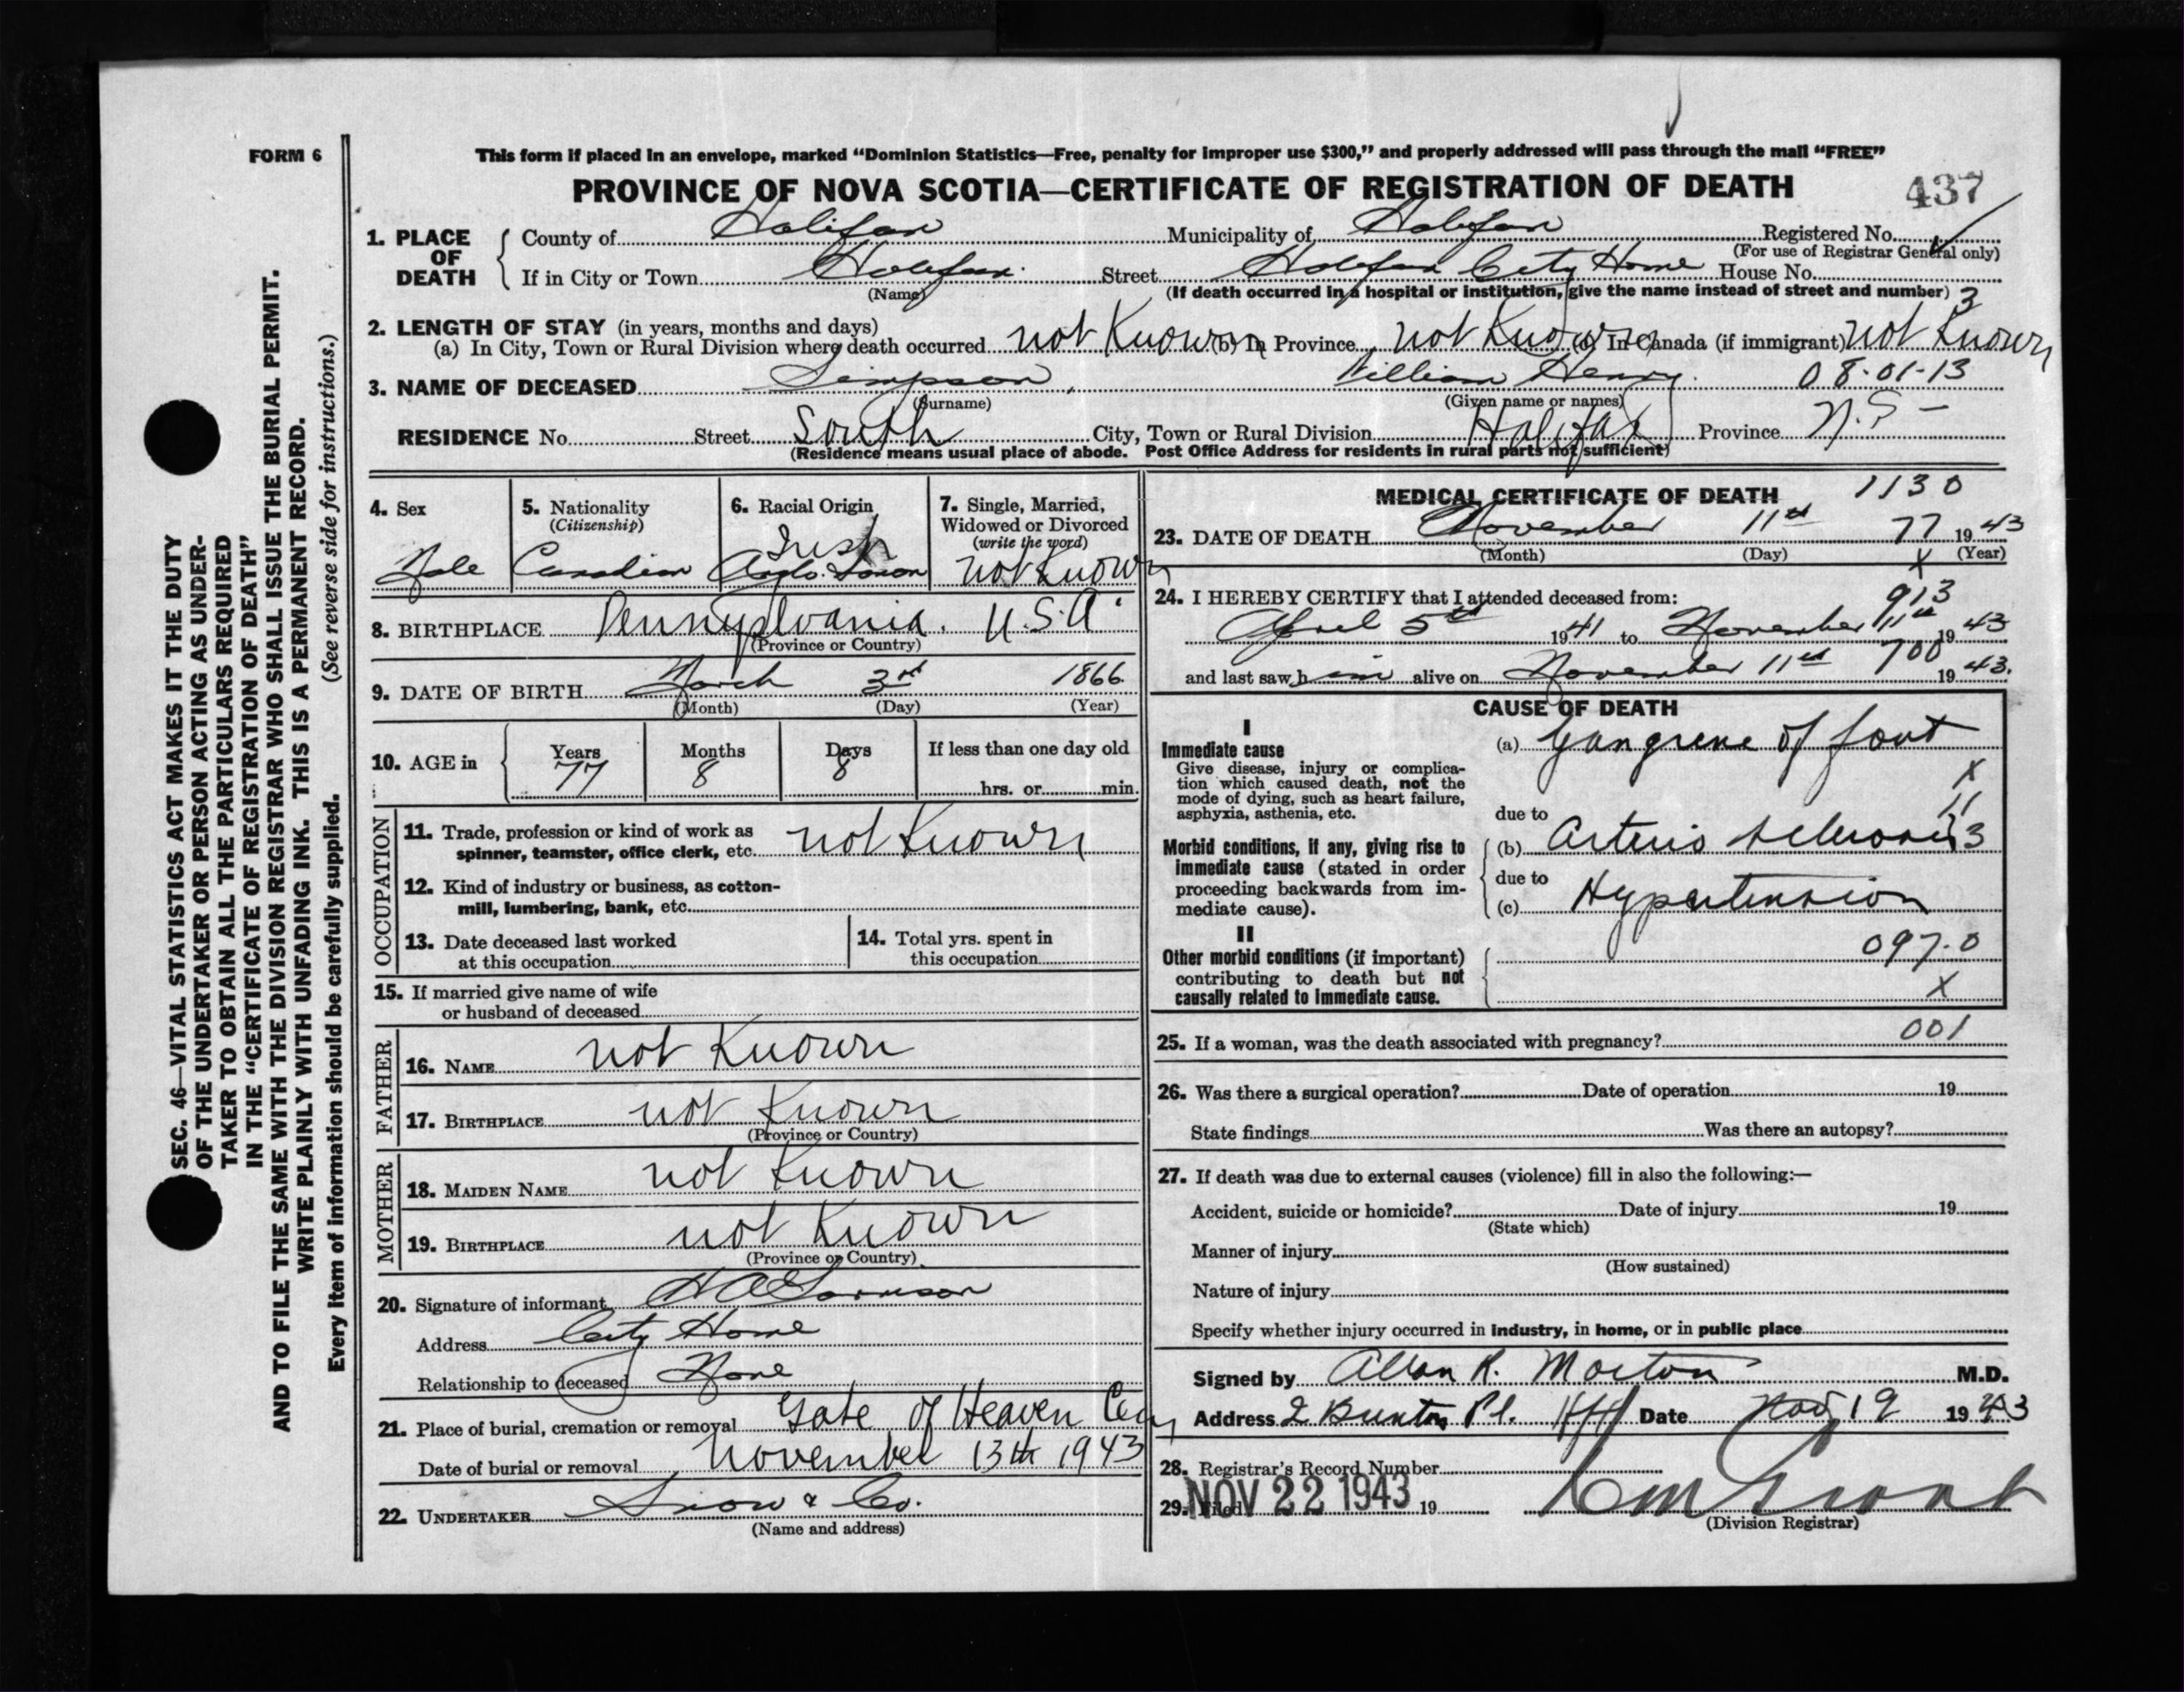 FORM 6
This form if placed in an envelope, marked “Dominion Statistics—Free, penalty for improper use $300,” and properly addressed will pass through the mail “FREE”
PROVINCE OF NOVA SCOTIA—CERTIFICATE OF REGISTRATION OF DEATH
437
1. PLACE OF DEATH
County of Halifax Municipality of Halifax Registered No.
(For use of Registrar General only)
If in City or Town Halifax. Street Halifax City Home House No.
(Name) (If death occurred in a hospital or institution, give the name instead of street and number) 3
2. LENGTH OF STAY (in years, months and days)
(a) In City, Town or Rural Division where death occurred not Known (b) In Province not Known (c) In Canada (if immigrant) not Known
3. NAME OF DECEASED Simpson, William Henry. 08-01-13
(Surname) (Given name or names)
RESIDENCE No. Street South City, Town or Rural Division Halifax Province N.S-
(Residence means usual place of abode. Post Office Address for residents in rural parts not sufficient)
4. Sex
Male
5. Nationality
(Citizenship)
Canadian
6. Racial Origin
Irish
Anglo. Saxon
7. Single, Married, Widowed or Divorced
(write the word)
not Known
8. BIRTHPLACE Pennyslvania. U.S.A.
(Province or Country)
9. DATE OF BIRTH March 3rd 1866
(Month) (Day) (Year)
10. AGE in
Years Months Days If less than one day old
77 8 8 hrs. or min.
OCCUPATION
11. Trade, profession or kind of work as
spinner, teamster, office clerk, etc. not Known
12. Kind of industry or business, as cotton-
mill, lumbering, bank, etc.
13. Date deceased last worked
at this occupation
14. Total yrs. spent in
this occupation
15. If married give name of wife
or husband of deceased
FATHER
16. NAME not Known
17. BIRTHPLACE not Known
(Province or Country)
MOTHER
18. MAIDEN NAME not Known
19. BIRTHPLACE not Known
(Province or Country)
20. Signature of informant
Address City Home
Relationship to deceased None
21. Place of burial, cremation or removal Gate of Heaven Cem
Date of burial or removal November 13th 1943
22. UNDERTAKER Snow & Co.
(Name and address)
MEDICAL CERTIFICATE OF DEATH 1130
23. DATE OF DEATH November 11th 77 1943
(Month) (Day) X (Year)
24. I HEREBY CERTIFY that I attended deceased from: 913
April 5th 1941 to November 11th 1943
and last saw him alive on November 11th 700 1943.
CAUSE OF DEATH
I
Immediate cause
Give disease, injury or complica-
tion which caused death, not the
mode of dying, such as heart failure,
asphyxia, asthenia, etc.
(a) Gangrene of foot
X
11
due to
Morbid conditions, if any, giving rise to
immediate cause (stated in order
proceeding backwards from im-
mediate cause).
(b) Arterio sclerosis 3
due to
(c) Hypertension
II
Other morbid conditions (if important)
contributing to death but not
causally related to immediate cause.
097.0
X
25. If a woman, was the death associated with pregnancy? 001
26. Was there a surgical operation? Date of operation 19
State findings Was there an autopsy?
27. If death was due to external causes (violence) fill in also the following:—
Accident, suicide or homicide? Date of injury 19
(State which)
Manner of injury
(How sustained)
Nature of injury
Specify whether injury occurred in industry, in home, or in public place
Signed by Allan R. Morton M.D.
Address 2 Pl. Hfx Date Nov 19 1943
28. Registrar's Record Number
29. Filed NOV 22 1943 19
(Division Registrar)
SEC. 46—VITAL STATISTICS ACT MAKES IT THE DUTY
OF THE UNDERTAKER OR PERSON ACTING AS UNDER-
TAKER TO OBTAIN ALL THE PARTICULARS REQUIRED
IN THE “CERTIFICATE OF REGISTRATION OF DEATH”
AND TO FILE THE SAME WITH THE DIVISION REGISTRAR WHO SHALL ISSUE THE BURIAL PERMIT.
WRITE PLAINLY WITH UNFADING INK. THIS IS A PERMANENT RECORD.
Every item of information should be carefully supplied. (See reverse side for instructions.)